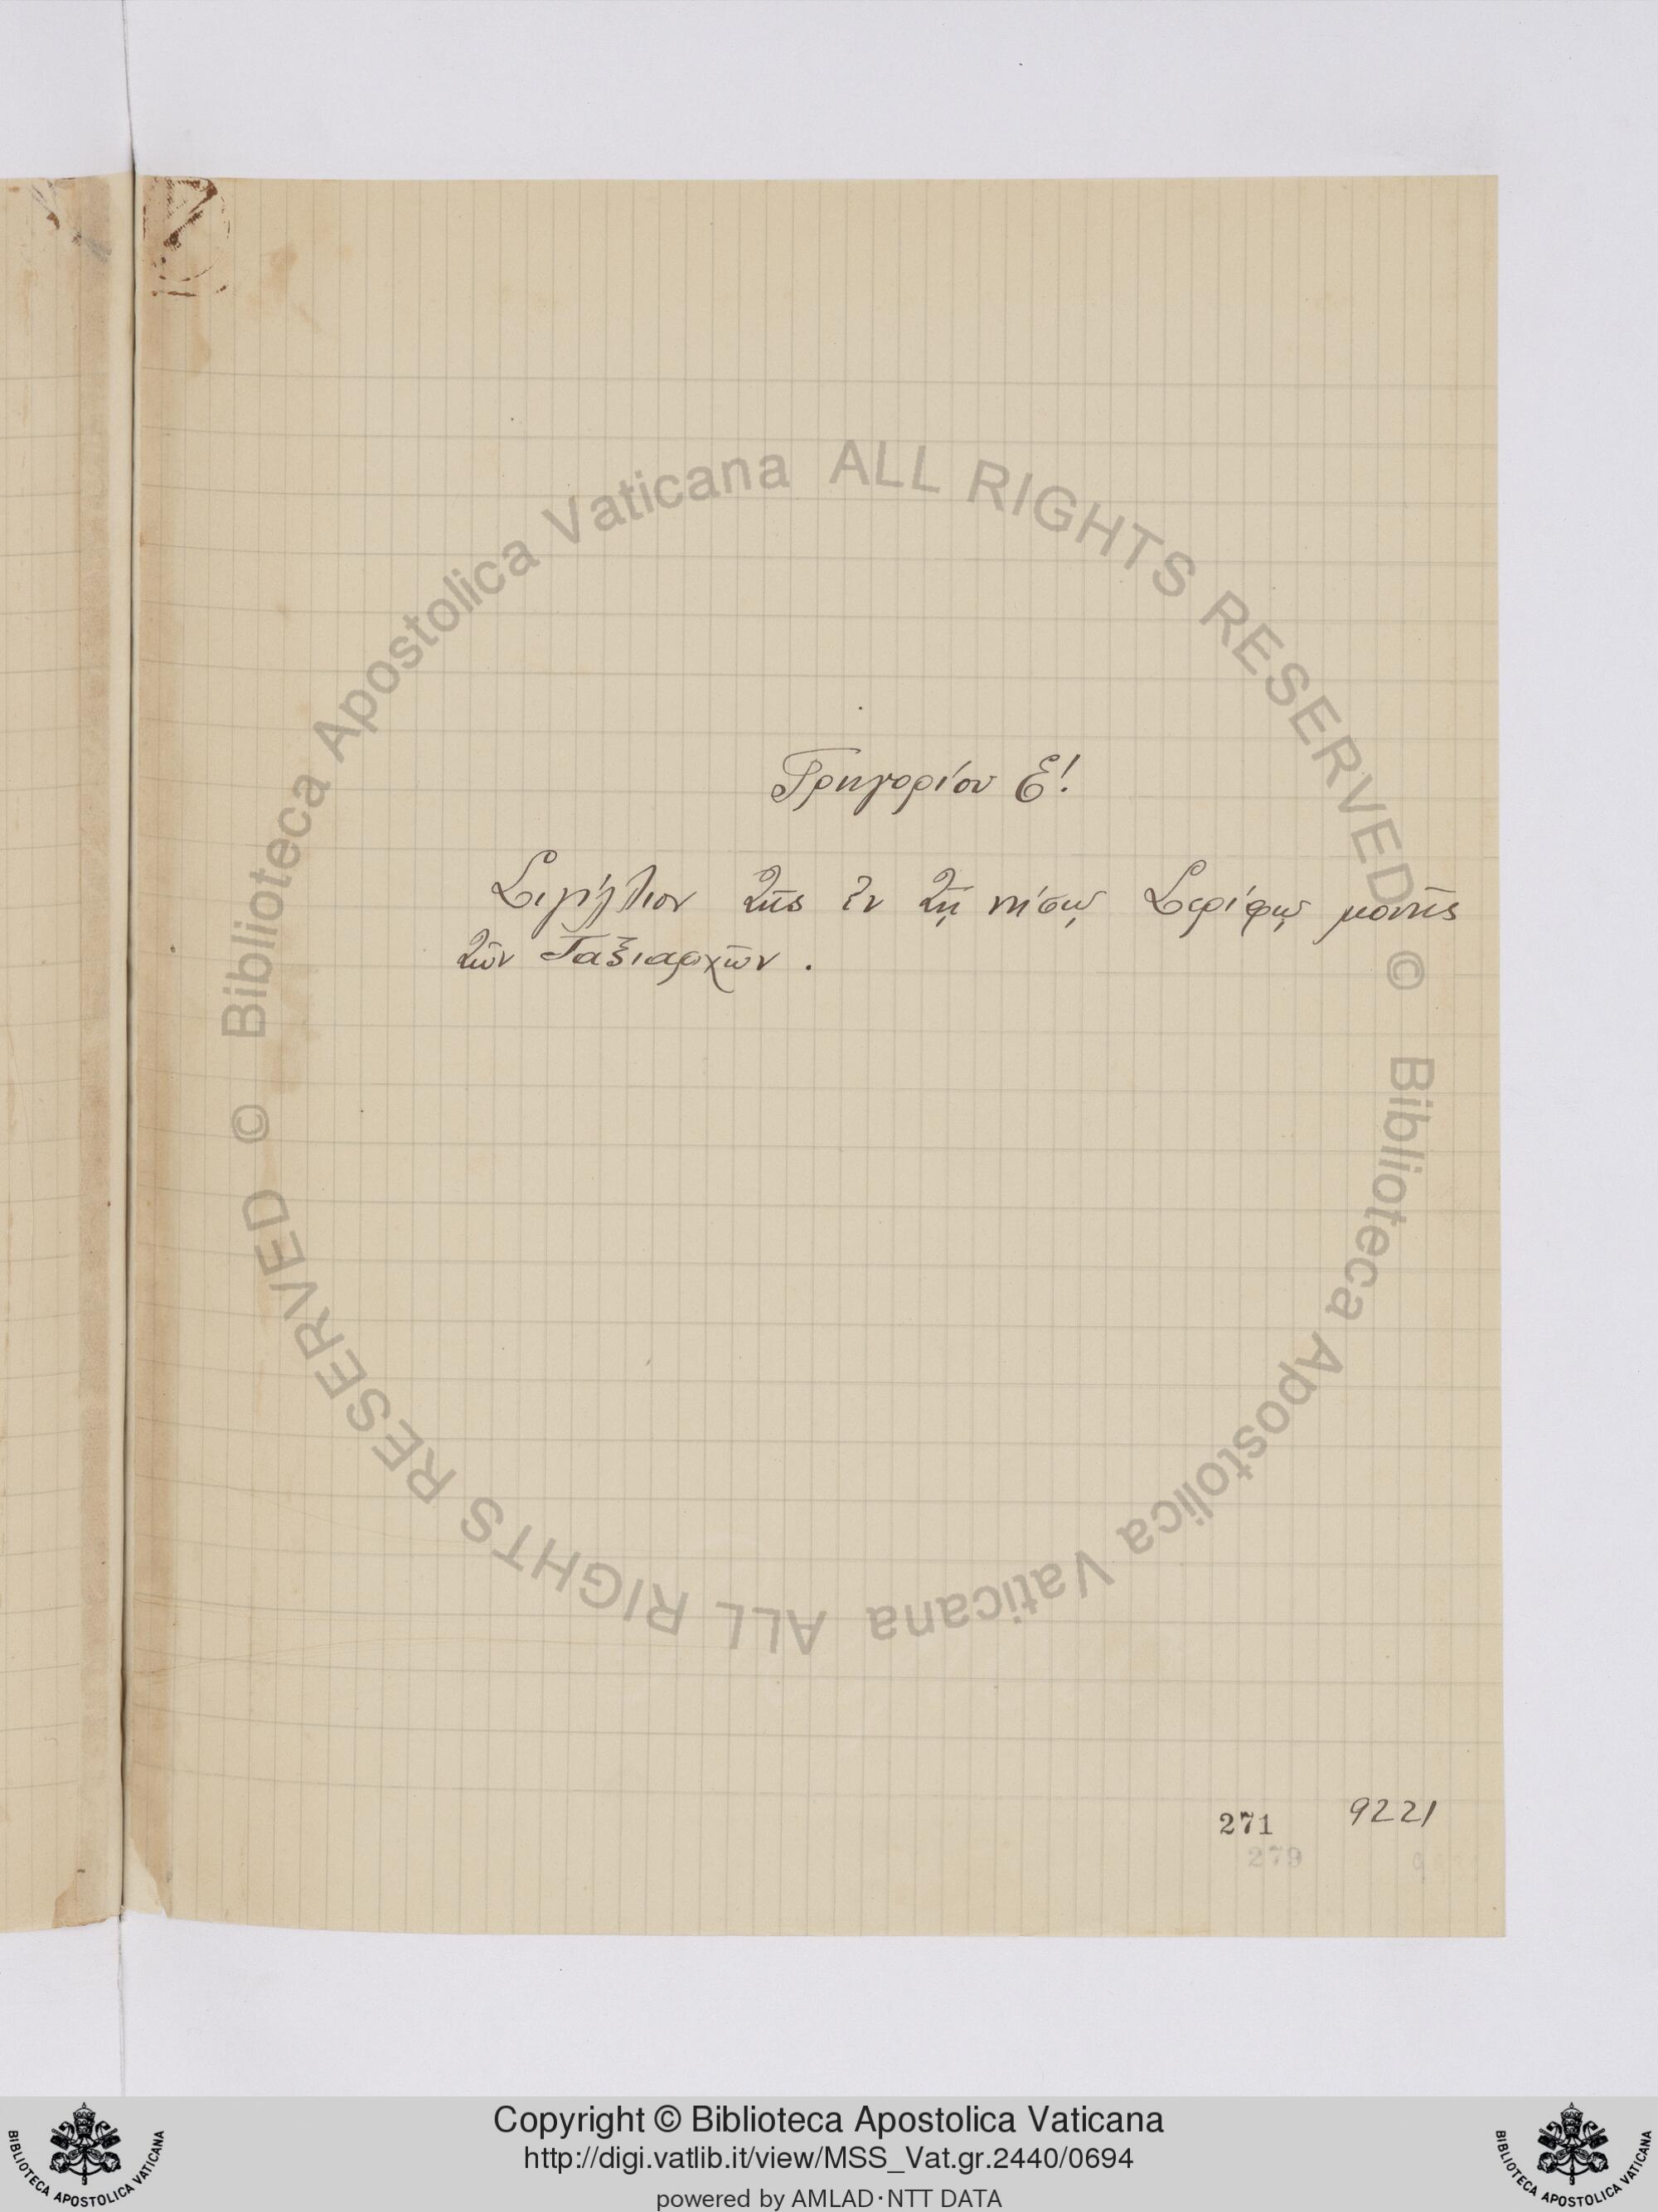 Γρηγορίου Ε'.
Σιγίλλιον τῆς ἐν τῇ νήσῳ Σερίφῳ μονῆς
τῶν Ταξιαρχῶν.
271 9221
279
© Biblioteca Apostolica Vaticana ALL RIGHTS RESERVED
© Biblioteca Apostolica Vaticana ALL RIGHTS RESERVED
Copyright © Biblioteca Apostolica Vaticana
http://digi.vatlib.it/view/MSS_Vat.gr.2440/0694
powered by AMLAD·NTT DATA
BIBLIOTECA APOSTOLICA VATICANA
BIBLIOTECA APOSTOLICA VATICANA